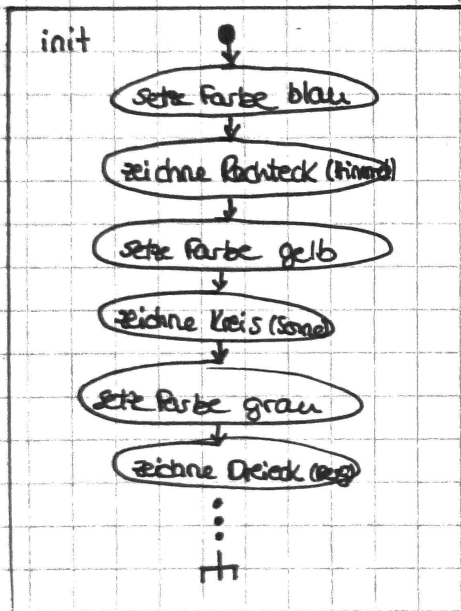 init
setze Farbe blau
zeichne Rechteck (Himmel)
setze Farbe gelb
zeichne Kreis (Sonne)
setze Farbe grau
zeichne Dreieck (Berg)